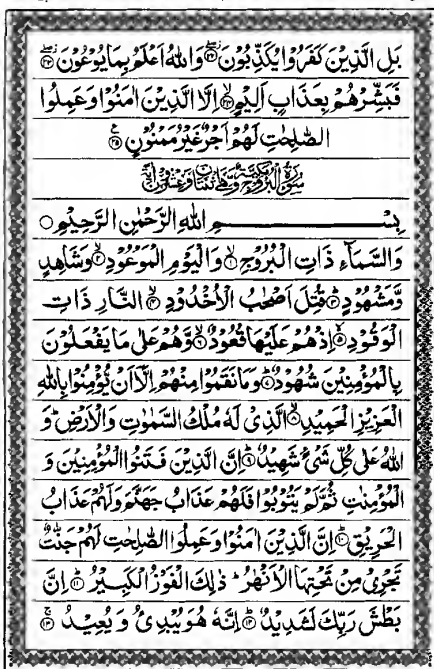 بَلِ الَّذِيْنَ كَفَرُوْا يُكَذِّبُوْنَ ﴿۲۲﴾ وَاللّٰهُ اَعْلَمُ بِمَا يُوْعُوْنَ ﴿۲۳﴾
فَبَشِّرْهُمْ بِعَذَابٍ اَلِيْمٍ ﴿۲۴﴾ اِلَّا الَّذِيْنَ اٰمَنُوْا وَعَمِلُوا
الصّٰلِحٰتِ لَهُمْ اَجْرٌ غَيْرُ مَمْنُوْنٍ ﴿۲۵﴾
سُوْرَةُ الْبُرُوْجِ مَكِّيَّةٌ وَّهِيَ ثِنْتَانِ وَعِشْرُوْنَ اٰيَةً
بِسْمِ اللّٰهِ الرَّحْمٰنِ الرَّحِيْمِ ○
وَالسَّمَآءِ ذَاتِ الْبُرُوْجِ ﴿۱﴾ وَالْيَوْمِ الْمَوْعُوْدِ ﴿۲﴾ وَشَاهِدٍ
وَّمَشْهُوْدٍ ﴿۳﴾ قُتِلَ اَصْحٰبُ الْاُخْدُوْدِ ﴿۴﴾ النَّارِ ذَاتِ
الْوَقُوْدِ ﴿۵﴾ اِذْ هُمْ عَلَيْهَا قُعُوْدٌ ﴿۶﴾ وَّهُمْ عَلٰى مَا يَفْعَلُوْنَ
بِالْمُؤْمِنِيْنَ شُهُوْدٌ ﴿۷﴾ وَمَا نَقَمُوْا مِنْهُمْ اِلَّآ اَنْ يُّؤْمِنُوْا بِاللّٰهِ
الْعَزِيْزِ الْحَمِيْدِ ﴿۸﴾ الَّذِيْ لَهٗ مُلْكُ السَّمٰوٰتِ وَالْاَرْضِ ؕ وَ
اللّٰهُ عَلٰى كُلِّ شَيْءٍ شَهِيْدٌ ﴿۹﴾ اِنَّ الَّذِيْنَ فَتَنُوا الْمُؤْمِنِيْنَ وَ
الْمُؤْمِنٰتِ ثُمَّ لَمْ يَتُوْبُوْا فَلَهُمْ عَذَابُ جَهَنَّمَ وَلَهُمْ عَذَابُ
الْحَرِيْقِ ﴿۱۰﴾ اِنَّ الَّذِيْنَ اٰمَنُوْا وَعَمِلُوا الصّٰلِحٰتِ لَهُمْ جَنّٰتٌ
تَجْرِيْ مِنْ تَحْتِهَا الْاَنْهٰرُ ؕ ذٰلِكَ الْفَوْزُ الْكَبِيْرُ ﴿۱۱﴾ اِنَّ
بَطْشَ رَبِّكَ لَشَدِيْدٌ ﴿۱۲﴾ اِنَّهٗ هُوَ يُبْدِئُ وَيُعِيْدُ ﴿۱۳﴾